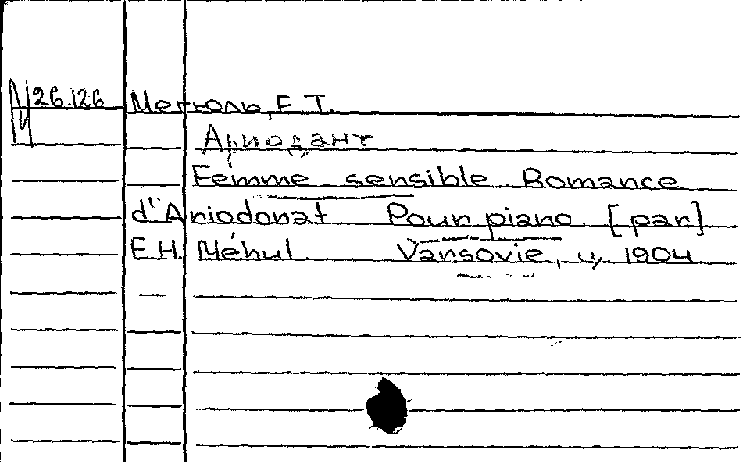 26.126 Мегюль, Е. Т.
Ариодант
Femme sensible Romance
d'Ariodonat Pour piano [par]
E.H. Méhul Varsovie, ц. 1904